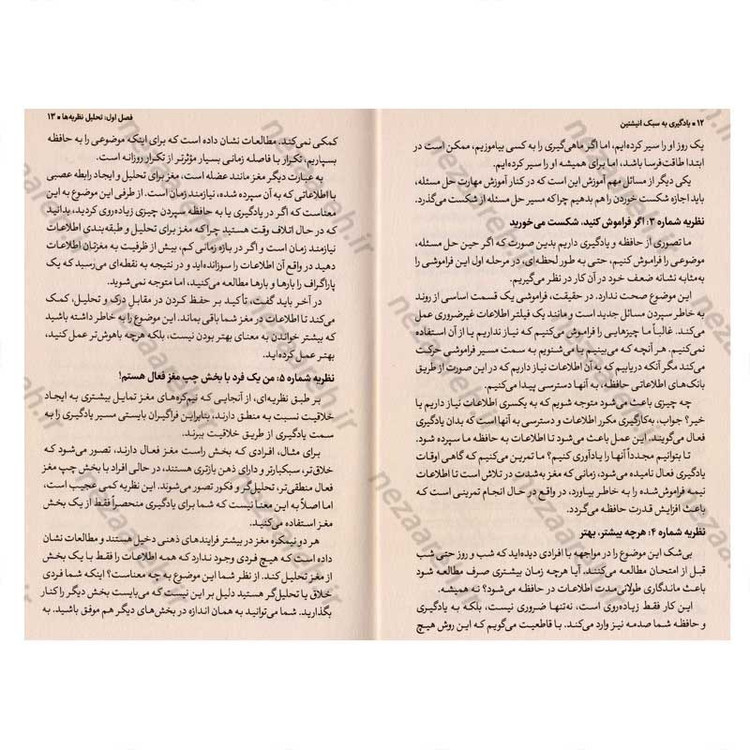 ۱۲ ● یادگیری به سبک انیشتین
یک روز او را سیر کرده‌ایم، اما اگر ماهی‌گیری را به کسی بیاموزیم، ممکن است در
ابتدا طاقت‌فرسا باشد، اما برای همیشه او را سیر کرده‌ایم.
یکی دیگر از مسائل مهم آموزش این است که در کنار آموزش مهارت حل مسئله،
باید اجازه شکست خوردن را هم بدهیم چراکه مسیر حل مسئله از شکست می‌گذرد.
نظریه شماره ۳: اگر فراموش کنید، شکست می‌خورید
ما تصوری از حافظه و یادگیری داریم بدین صورت که اگر حین حل مسئله،
موضوعی را فراموش کنیم، حتی به طور لحظه‌ای، در مرحله اول این فراموشی را
به‌مثابه نشانه ضعف خود در آن کار در نظر می‌گیریم.
این موضوع صحت ندارد. در حقیقت، فراموشی یک قسمت اساسی از روند
به خاطر سپردن مسائل جدید است و مانند یک فیلتر اطلاعات غیرضروری عمل
می‌کند. غالباً ما چیزهایی را فراموش می‌کنیم که نیاز نداریم یا از آن استفاده
نمی‌کنیم. هر آنچه که می‌بینیم یا می‌شنویم به سمت مسیر فراموشی حرکت
می‌کند مگر آنکه دریابیم که به آن اطلاعات نیاز داریم که در این صورت از طریق
بانک‌های اطلاعاتی حافظه، به آنها دسترسی پیدا می‌کنیم.
چه چیزی باعث می‌شود متوجه شویم که به یکسری اطلاعات نیاز داریم یا
خیر؟ جواب، به‌کارگیری مکرر اطلاعات و دسترسی به آنها است که بدان یادگیری
فعال می‌گویند. این عمل باعث می‌شود تا اطلاعات به حافظه ما سپرده شود.
تا بتوانیم مجدداً آنها را یادآوری کنیم؟ ما تمرین می‌کنیم که گاهی اوقات
یادگیری فعال نامیده می‌شود، زمانی که مغز به‌شدت در تلاش است تا اطلاعات
نیمه فراموش‌شده را به خاطر بیاورد، در واقع در حال انجام تمرینی است که
باعث افزایش قدرت حافظه می‌گردد.
نظریه شماره ۴: هرچه بیشتر، بهتر
بی‌شک این موضوع را در مواجهه با افرادی دیده‌اید که شب و روز حتی شب
قبل از امتحان مطالعه می‌کنند. آیا هرچه زمان بیشتری صرف مطالعه شود
باعث ماندگاری طولانی‌مدت اطلاعات در حافظه می‌شود؟ نه همیشه.
این کار فقط زیاده‌روی است، نه‌تنها ضروری نیست، بلکه به یادگیری
و حافظه شما صدمه نیز وارد می‌کند. با قاطعیت می‌گویم که این روش هیچ
فصل اول: تحلیل نظریه‌ها ● ۱۳
کمکی نمی‌کند. مطالعات نشان داده است که برای اینکه موضوعی را به حافظه
بسپاریم، تکرار با فاصله زمانی بسیار مؤثرتر از تکرار روزانه است.
به عبارت دیگر مغز مانند عضله است، مغز برای تحلیل و ایجاد رابطه عصبی
با اطلاعاتی که به آن سپرده شده، نیازمند زمان است. از طرفی این موضوع به این
معناست که اگر در یادگیری یا به حافظه سپردن چیزی زیاده‌روی کردید، بدانید
که در حال اتلاف وقت هستید چراکه مغز برای تحلیل و طبقه‌بندی اطلاعات
نیازمند زمان است و اگر در بازه زمانی کم، بیش از ظرفیت به مغزتان اطلاعات
دهید در واقع آن اطلاعات را سوزانده‌اید و در نتیجه به نقطه‌ای می‌رسید که یک
پاراگراف را بارها و بارها مطالعه می‌کنید، اما متوجه نمی‌شوید.
در آخر باید گفت، تأکید بر حفظ کردن در مقابل درک و تحلیل، کمک
می‌کند تا اطلاعات در مغز شما باقی بماند. این موضوع را به خاطر داشته باشید
که بیشتر خواندن به معنای بهتر بودن نیست، بلکه هرچه باهوش‌تر عمل کنید،
بهتر عمل کرده‌اید.
نظریه شماره ۵: من یک فرد با بخش چپ مغز فعال هستم!
بر طبق نظریه‌ای، از آنجایی که نیم‌کره‌های مغز تمایل بیشتری به ایجاد
خلاقیت نسبت به منطق دارند، بنابراین فراگیران بایستی مسیر یادگیری را به
سمت یادگیری از طریق خلاقیت ببرند.
برای مثال، افرادی که بخش راست مغز فعال دارند، تصور می‌شود که
خلاق‌تر، سبکبارتر و دارای ذهن بازتری هستند، در حالی افراد با بخش چپ مغز
فعال منطقی‌تر، تحلیل‌گر و فکور تصور می‌شوند. این نظریه کمی عجیب است،
اما اصلاً به این معنا نیست که شما برای یادگیری منحصراً فقط از یک بخش
مغز استفاده می‌کنید.
هر دو نیمکره مغز در بیشتر فرایندهای ذهنی دخیل هستند و مطالعات نشان
داده است که هیچ فردی وجود ندارد که همه اطلاعات را فقط با یک بخش
از مغز تحلیل کند. از نظر شما این موضوع به چه معناست؟ اینکه شما فردی
خلاق یا تحلیل‌گر هستید دلیل بر این نیست که می‌بایست بخش دیگر را کنار
بگذارید. شما می‌توانید به همان اندازه در بخش‌های دیگر هم موفق باشید. به
nezaareh.ir